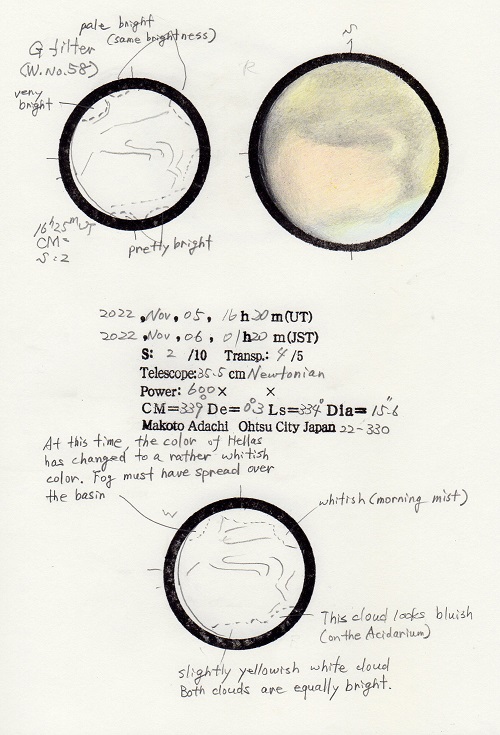 pale bright
(same brightness)
G filter
(W.No.58)
very
bright
S
R
16h25mUT
CM=
S=2
pretty bright
2022, Nov, 05, 16h20m(UT)
2022, Nov, 06, 01h20m(JST)
S: 2 /10 Transp.: 4/5
Telescope:35.5 cm Newtonian
Power: 600× ×
CM=339° De=0°.3 Ls=334° Dia=15".6
Makoto Adachi Ohtsu City Japan 22-330
At this time, the color of Hellas
has changed to a rather whitish
color. Fog must have spread over
the basin
whitish (morning mist)
W
This cloud looks bluish
(on the Acidarium)
slightly yellowish white cloud
Both clouds are equally bright.